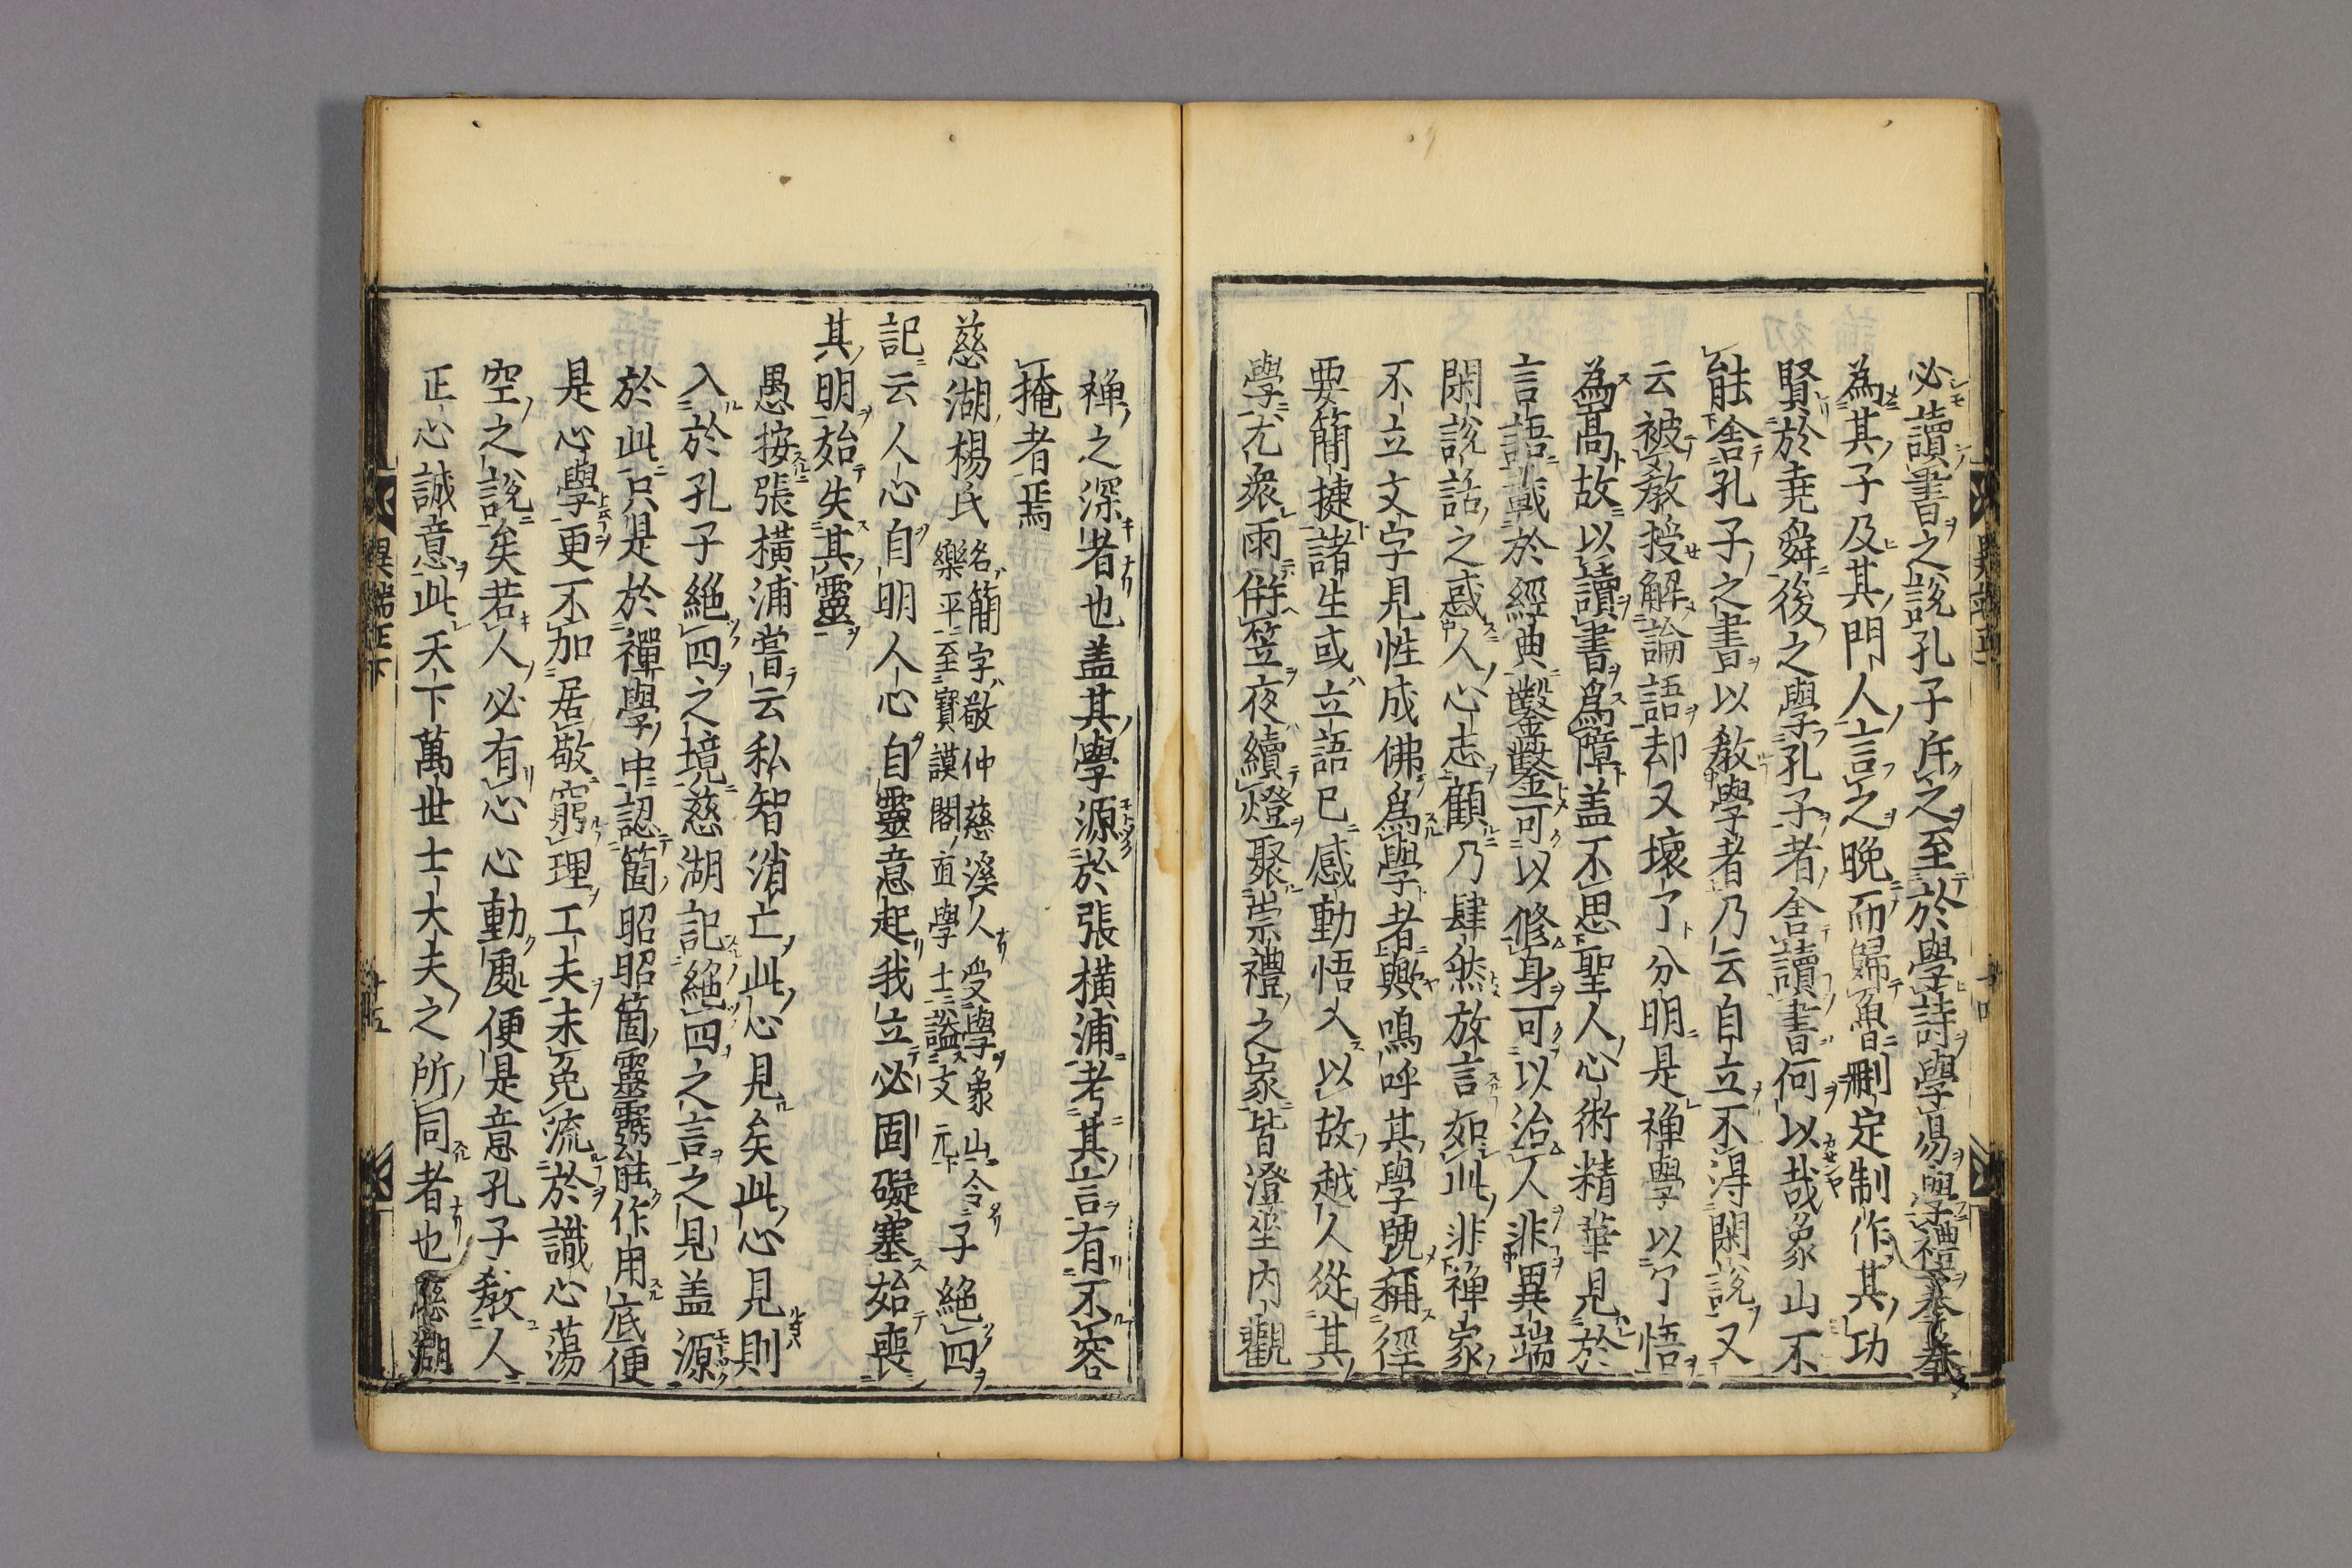 必讀書之說孔子斥之至於學詩學易學禮拳拳
為其子及其門人言之晚而歸魯刪定制作其功
賢於堯舜後之學孔子者舍讀書何以哉象山不
能舍孔子之書以教學者乃云自立不得閑說又
云被教授解論語却又壞了分明是禅學以了悟
為高故以讀書爲障盖不思聖人心術精華見於
言語載於經典鑿鑿可以修身可以治人非異端
閑說話之惑人心志顧乃肆然放言如此非禅家
不立文字見性成佛爲學者歟嗚呼其學號稱徑
要簡捷諸生或立語已感動悟入以故越人從其
學尤衆雨併笠夜續燈聚崇禮之家皆澄坐内觀
異端正
禅之深者也盖其學源於張横浦考其言有不容
掩者焉
慈湖楊氏名簡字敬仲慈溪人受學象山令
樂平至寶謨閣直學士謚文元子絕四
記云人心自明人心自靈意起我立必固礙塞始喪
其明始失其靈
愚按張橫浦嘗云私智消亡此心見矣此心見則
入於孔子絕四之境慈湖記絕四之言之見盖源
於此只是於禪學中認箇昭昭箇靈靈能作用底便
是心學更不加居敬窮理工夫未免流於識心蕩
空之說矣若人必有心心動處便是意孔子教人
正心誠意此天下萬世士大夫之所同者也慈湖
異端正下